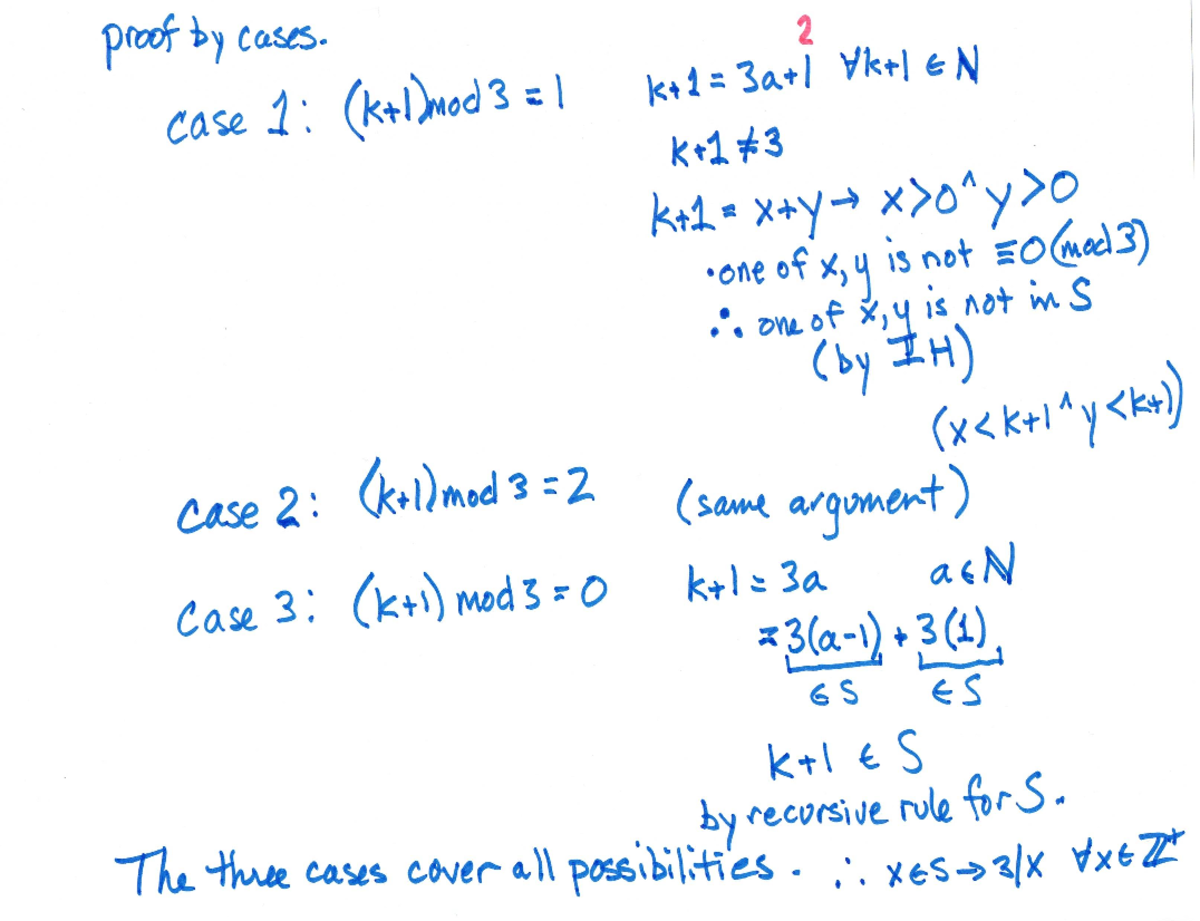 proof by cases.
2
case 1: (k+1)mod 3 = 1 k+1 = 3a+1 ∀k+1 ∈ ℕ
k+1 ≠ 3
k+1 = x+y → x>0 ^ y>0
• one of x, y is not ≡0 (mod 3)
∴ one of x, y is not in S
(by IH)
(x<k+1 ^ y<k+1)
case 2: (k+1) mod 3 = 2 (same argument)
case 3: (k+1) mod 3 = 0 k+1 = 3a a∈ℕ
= 3(a-1) + 3(1)
∈ S ∈ S
k+1 ∈ S
by recursive rule for S.
The three cases cover all possibilities. ∴ x∈S → 3|x ∀x∈ℤ⁺